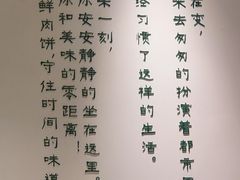 在变，
来去匆匆的扮演着都市
习惯了这样的生活。
一刻，
你安安静静的坐在这里。
你和美味的零距离！
鲜肉饼，守住时间的味道